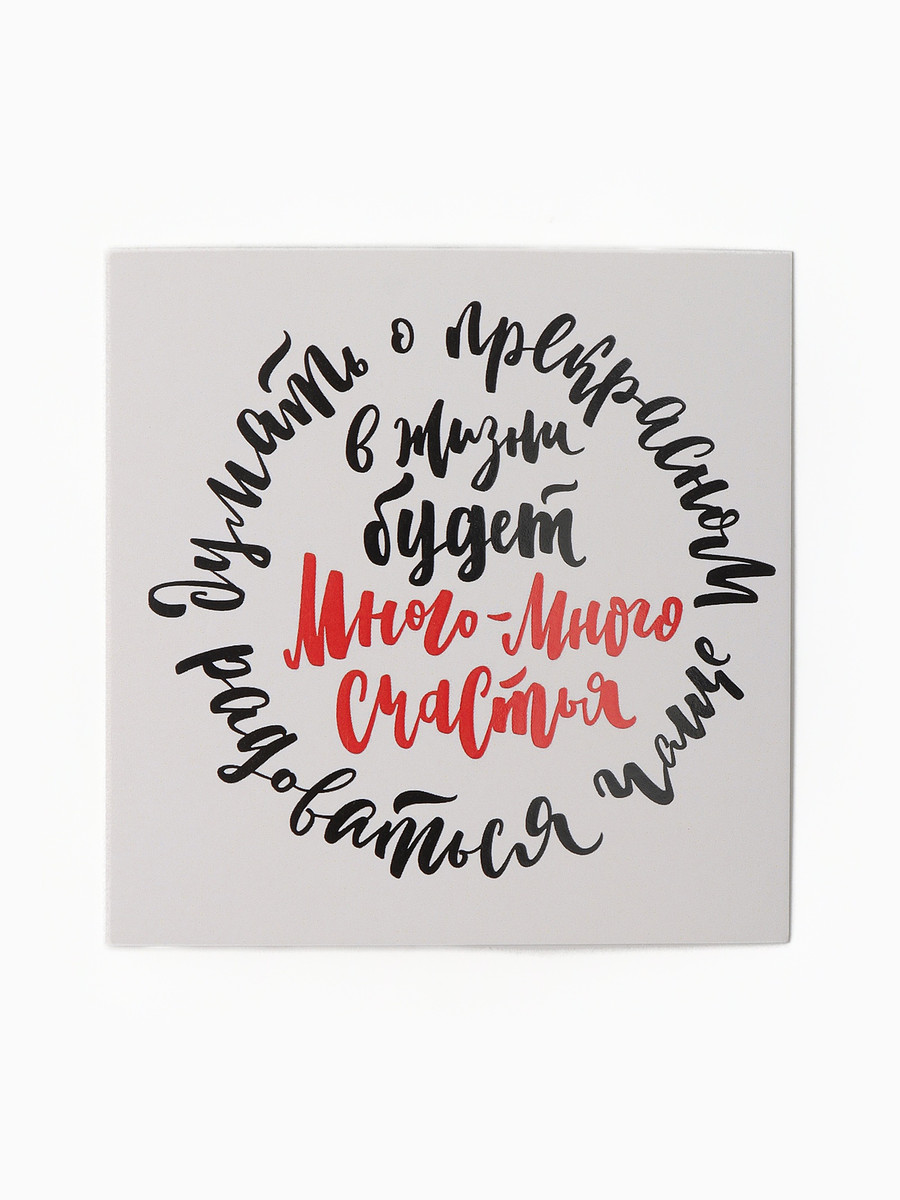 Думать о прекрасном чаще радоваться
в жизни
будет
Много-много
счастья